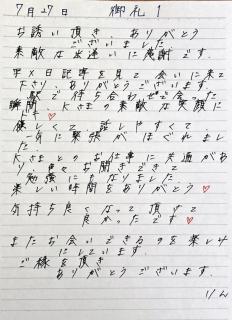 7月27日 御礼 1
お誘い頂き、ありがとう
ございました
素敵な出逢いに感謝です。
写メ日記等を見て会いに来て
下さり
駅で待ち合わせで会った
瞬間、Kさまの素敵な笑顔に
優しくて話しやすくて
一気に緊張がほぐれまし
た
Kさまとのお仕事に共通があ
り色々お聞きできて
勉強になりました
楽しい時間をありがとう♡
気持ち良くなって頂けて
良かったです♡
またお会いできるのを楽しみ
にしています。
ご縁を頂き
ありがとうございます。
りん